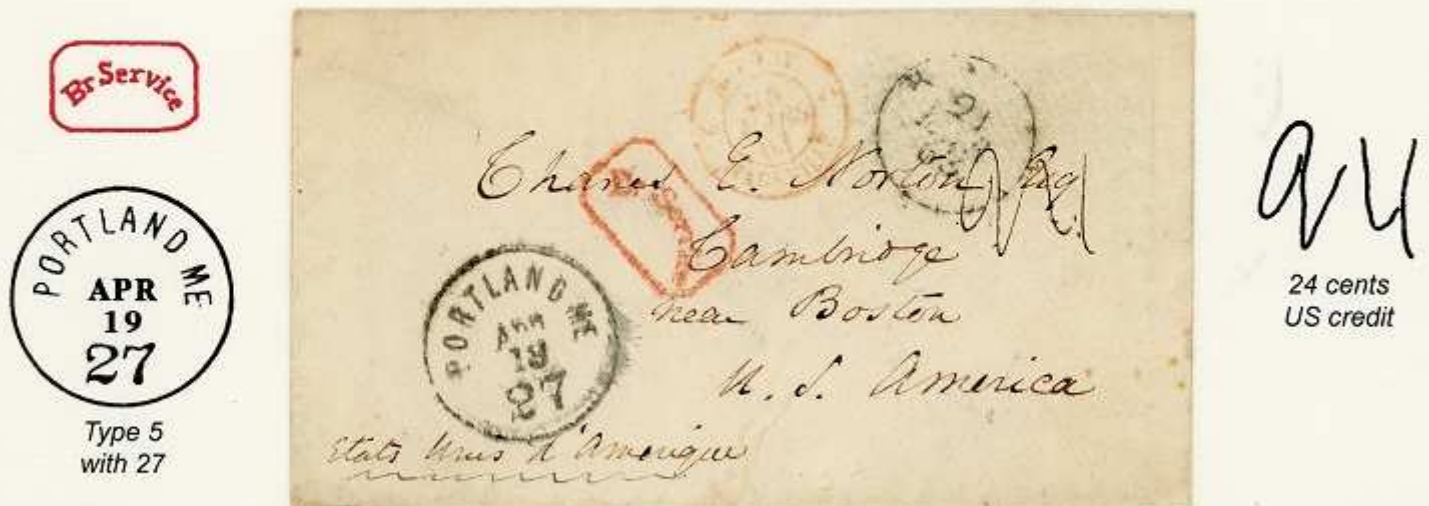 Br Service
PORTLAND ME
APR
19
27
Type 5
with 27
Br Service
21
Charles E. Norton Esq
24
Cambridge
near Boston
U. S. America
PORTLAND ME
APR
19
27
Etats Unis d'Amerique
24
24 cents
US credit